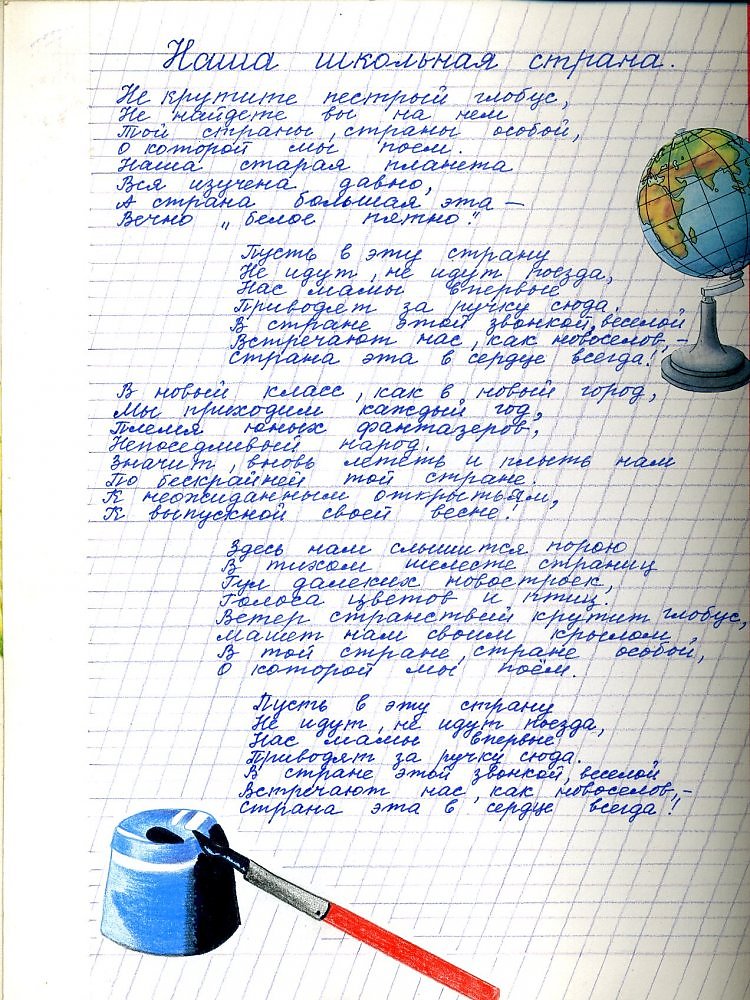 Наша школьная страна.
Не крутите пестрый глобус,
Не найдете вы на нем
Той страны, страны особой,
О которой мы поем.
Наша старая планета
Вся изучена давно,
А страна большая эта –
Вечно „белое пятно".
Пусть в эту страну
Не идут, не идут поезда,
Нас мамы впервые
Приводят за ручку сюда.
В стране этой звонкой, веселой
Встречают нас, как новоселов, –
Страна эта в сердце всегда!
В новый класс, как в новый город,
Мы приходим каждый год,
Племя юных фантазеров,
Непоседливый народ.
Значит, вновь лететь и плыть нам
По бескрайней той стране.
К неожиданным открытьям,
К выпускной своей весне!
Здесь нам слышится порою
В тихом шелесте страниц
Гул далеких новостроек,
Голоса цветов и птиц.
Ветер странствий крутит глобус,
Машет нам своим крылом,
В той стране, стране особой,
О которой мы поём.
Пусть в эту страну
Не идут, не идут поезда,
Нас мамы впервые
Приводят за ручку сюда.
В стране этой звонкой, веселой
Встречают нас, как новоселов, –
Страна эта в сердце всегда!